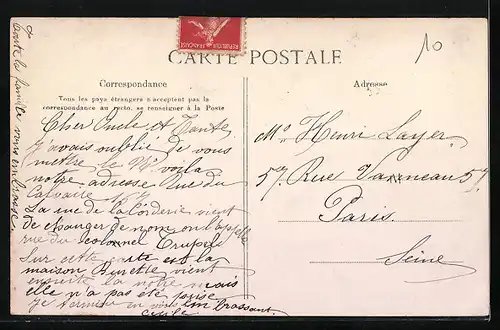 10
CARTE POSTALE
Correspondance
Tous les pays étrangers n'acceptent pas la
correspondance au recto, se renseigner à la Poste
Adresse
Cher Oncle et Tante,
j'avais oublié de vous
mettre le No voila
notre adresse Rue du
Calvaire
La rue de la Corderie vient
de changer de nom on l'appelle
rue du colonel
Sur cette carte est la
maison vient
ensuite la notre mais
elle n'a pas été prise
Je termine en vous embrassant
Cécile
Toute la famille vous embrasse
Mr Henri Layer
57 Rue Vanneau 57
Paris
Seine